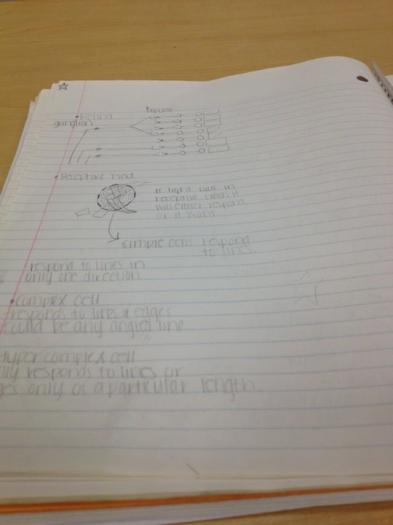 ganglion
Receptive Field
If light lands in
receptive field, it
will either respond
or
simple cells respond
to lines.
respond to lines in
only one direction
complex cell
responds to lines & edges
could be any angled line
Hyper complex cell
only responds to lines or
edges only of a particular length